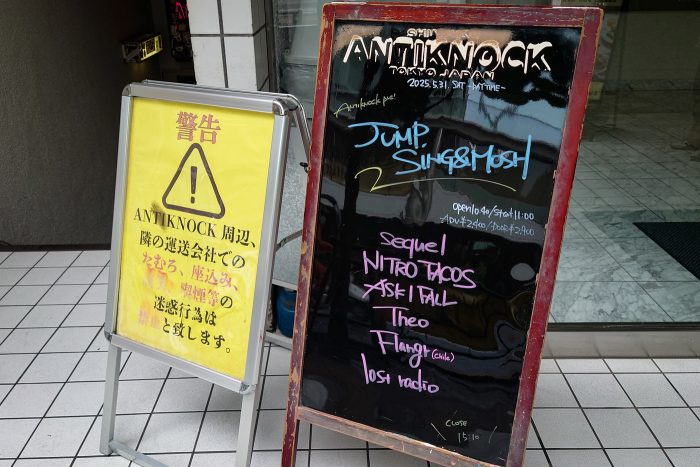 警告
ANTIKNOCK 周辺、
隣の運送会社での
たむろ、座込み、
喫煙等の
迷惑行為は
禁止と致します。
SHIN
ANTIKNOCK
TOKYO JAPAN
2025.5.31. SAT -DAYTIME-
ANTIKNOCK pre!
JUMP,
SING&MOSH
2
open10:40/start11:00
ADV.¥2,400/DOOR¥2,900
sequel
NITRO TACOS
ASK I FALL
Theo
Flangr (chile)
lost radio
CLOSE
15:10